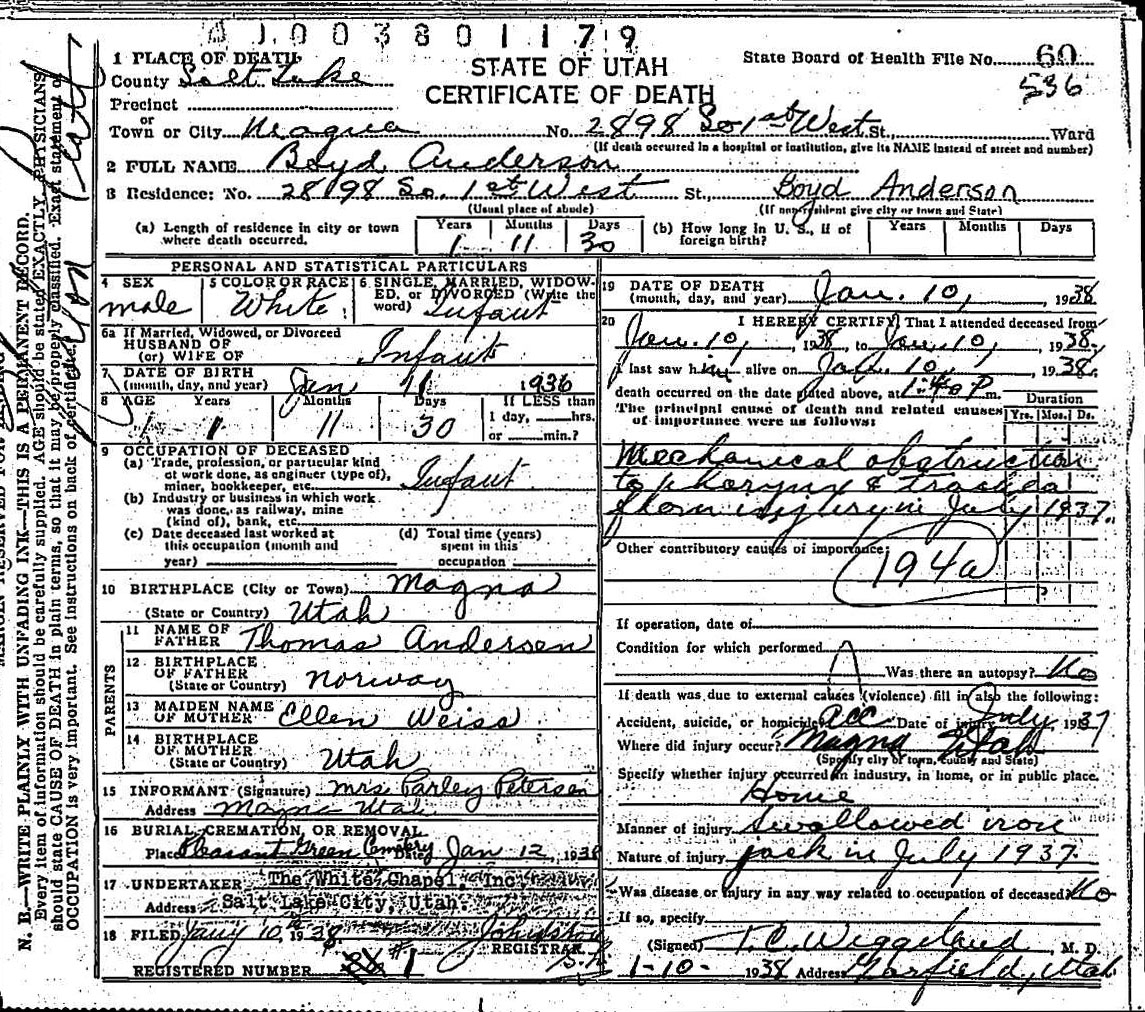 A J 0 0 3 8 0 1 1 7 9
1 PLACE OF DEATH
County Salt Lake
Precinct
or
Town or City Magna No. 2898 So 1st West St., Ward
(If death occurred in a hospital or institution, give its NAME instead of street and number)
STATE OF UTAH
CERTIFICATE OF DEATH
State Board of Health File No. 60
536
2 FULL NAME Boyd Anderson
3 Residence: No. 2898 So. 1st West St., Boyd Anderson
(Usual place of abode) (If nonresident give city or town and State)
(a) Length of residence in city or town where death occurred. Years 1 Months 11 Days 30
(b) How long in U. S., if of foreign birth? Years Months Days
PERSONAL AND STATISTICAL PARTICULARS
4 SEX male
5 COLOR OR RACE White
6 SINGLE, MARRIED, WIDOWED, or DIVORCED (Write the word) Infant
6a If Married, Widowed, or Divorced
HUSBAND OF
(or) WIFE OF Infant
7 DATE OF BIRTH
(month, day, and year) Jan 11 1936
8 AGE Years 1 Months 11 Days 30 If LESS than 1 day, hrs. or min.?
9 OCCUPATION OF DECEASED
(a) Trade, profession, or particular kind of work done, as engineer (type of), miner, bookkeeper, etc. Infant
(b) Industry or business in which work was done, as railway, mine (kind of), bank, etc.
(c) Date deceased last worked at this occupation (month and year)
(d) Total time (years) spent in this occupation
10 BIRTHPLACE (City or Town) Magna
(State or Country) Utah
PARENTS
11 NAME OF FATHER Thomas Andersen
12 BIRTHPLACE OF FATHER
(State or Country) Norway
13 MAIDEN NAME OF MOTHER Ellen Weiss
14 BIRTHPLACE OF MOTHER
(State or Country) Utah
15 INFORMANT (Signature) Mrs Parley Petersen
Address Magna Utah
16 BURIAL, CREMATION, OR REMOVAL
Place Pleasant Green Cemetery Date Jan 12, 1938
17 UNDERTAKER The White Chapel, Inc.
Address Salt Lake City, Utah.
18 FILED Jany 10 1938
REGISTRAR
REGISTERED NUMBER #1
19 DATE OF DEATH
(month, day, and year) Jan. 10, 1938
20 I HEREBY CERTIFY, That I attended deceased from
Jan. 10, 1938, to Jan. 10, 1938.
I last saw him alive on Jan. 10, 1938.
death occurred on the date stated above, at 1:40 P m.
The principal cause of death and related causes of importance were as follows:
Duration
Yrs. Mos. Ds.
Mechanical obstruction
to pharynx & trachea
from injury in July 1937.
Other contributory causes of importance:
194a
If operation, date of
Condition for which performed
Was there an autopsy? No
If death was due to external causes (violence) fill in also the following:
Accident, suicide, or homicide? Acc. Date of injury July 1937
Where did injury occur? Magna Utah
(Specify city or town, county and State)
Specify whether injury occurred in industry, in home, or in public place.
Home
Manner of injury Swallowed iron
Nature of injury jack in July 1937.
Was disease or injury in any way related to occupation of deceased? No
If so, specify
(Signed) T. C. Weggeland, M. D.
1-10- 1938 Address Garfield, Utah
N. B.—WRITE PLAINLY WITH UNFADING INK—THIS IS A PERMANENT RECORD.
Every item of information should be carefully supplied. AGE should be stated EXACTLY. PHYSICIANS
should state CAUSE OF DEATH in plain terms, so that it may be properly classified. Exact statement of
OCCUPATION is very important. See instructions on back of certificate.